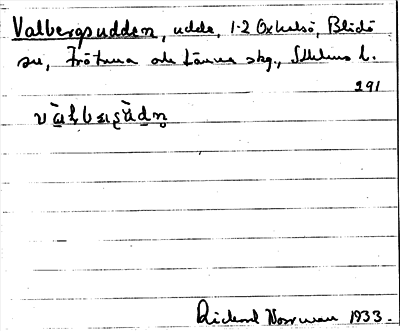 Valbergsudden, udde, 1-2 Oxhalsö, Blidö
sn, Frötuna och Länna skg., Sthlms l.
291
Rickard Norrman 1933.